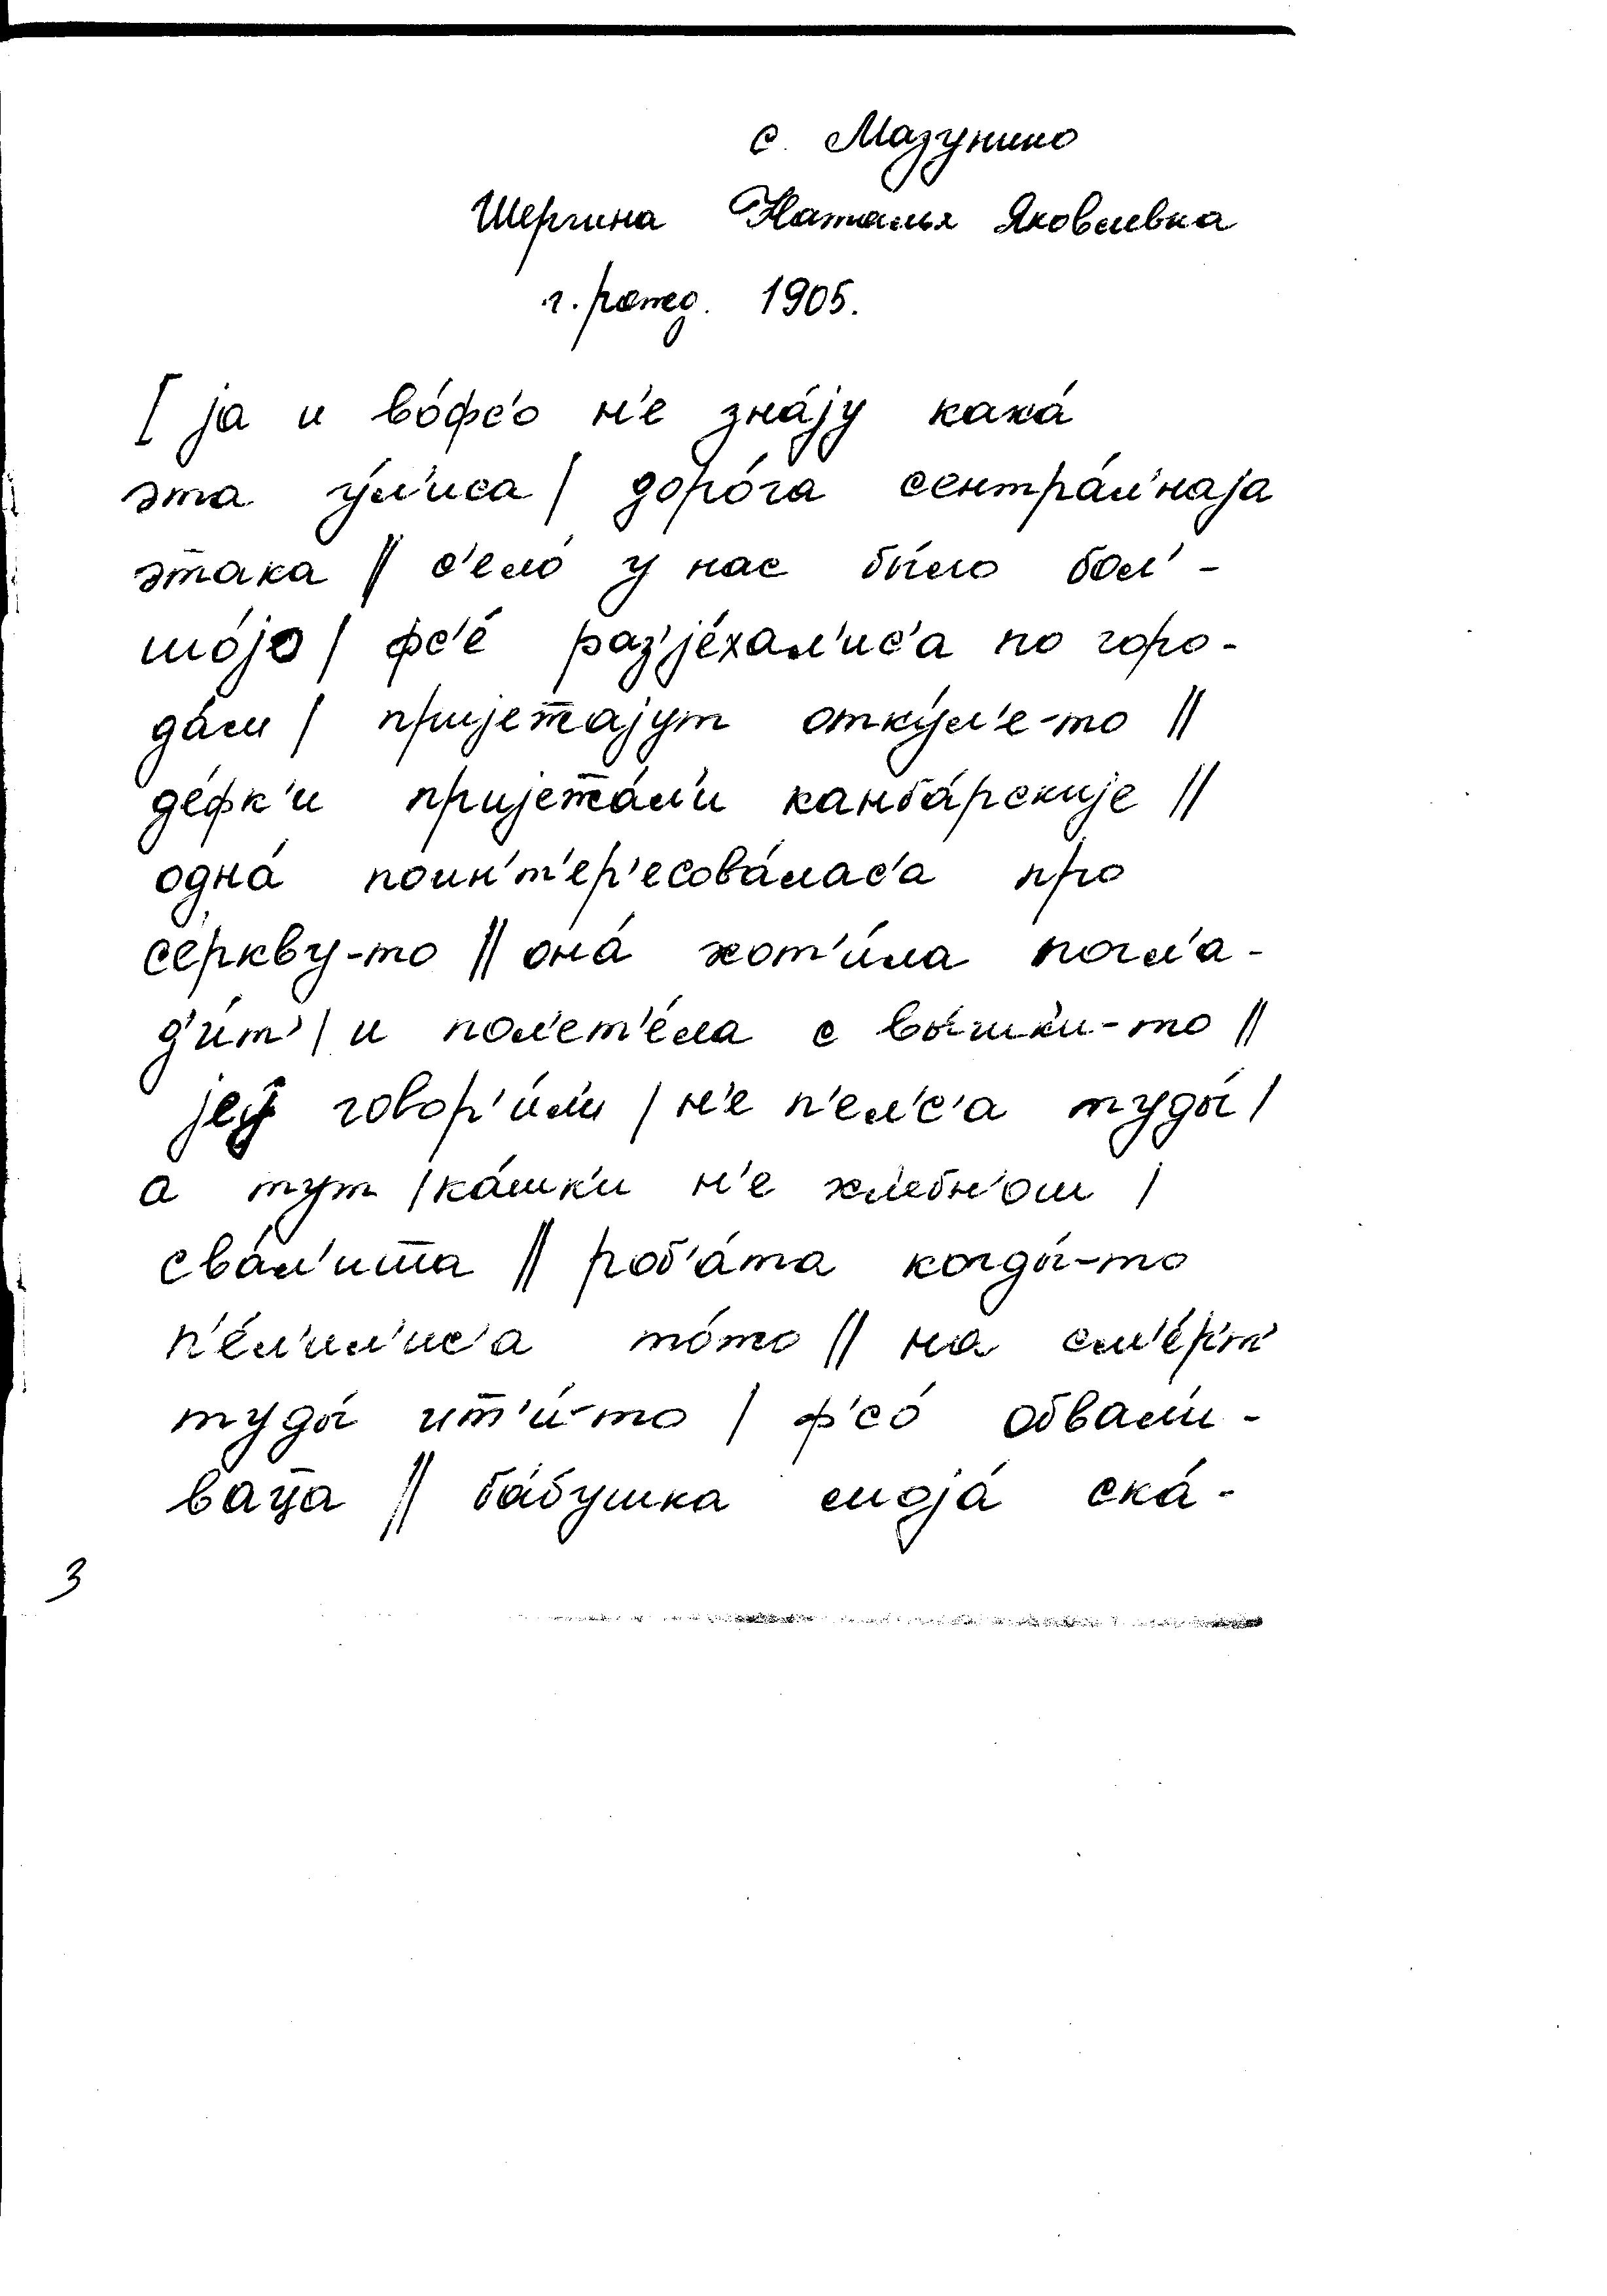 с. Мазунино
Шергина Наталья Яковлевна
г. рожд. 1905.
[ jа и во́фс'о н'е зна́jу кака́
эта у́л'иса | доро́га сентра́л'наjа
э̄така || с'ело́ у нас бы́ло бол'-
шо́jо | фс'е́ раз'jе́хал'ис'а по горо-
да́м | приjет̄аjут отку́л'е-то ||
де́фк'и приjет̄а́л'и канба́рскиjе ||
одна́ поин'т'ер'есова́лас'а про
се́ркву-то || она́ хот'и́ла погл'а-
д'и́т' | и пол'ет'е́ла с вы́шк'и-то ||
jеj говор'и́л'и | н'е п'ел'с'а туды́ |
а тут | ка́шк'и н'е хл'ебн'ош |
сва́л'ит̄а || роб'а́та когды́-то
п'е́л'ил'ис'а то́жо || на см'е́р'т'
туды́ ит̄'и́-то | ф'со́ обвал'и-
ваца || ба́бушка моjа́ ска́-
3